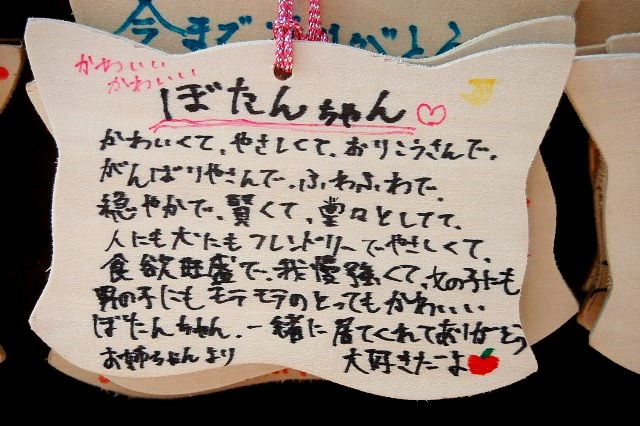 今までありがとう
かわいい
かわいい
ぼたんちゃん♡
かわいくて、やさしくて、おりこうさんで、
がんばりやさんで、ふわふわで、
穏やかで、賢くて、堂々としてて、
人にも犬にもフレンドリーでやさしくて、
食欲旺盛で、我慢強くて、女の子にも
男の子にもモテモテのとってもかわいい
ぼたんちゃん、一緒に居てくれてありがとう
お姉ちゃんより 大好きだよ